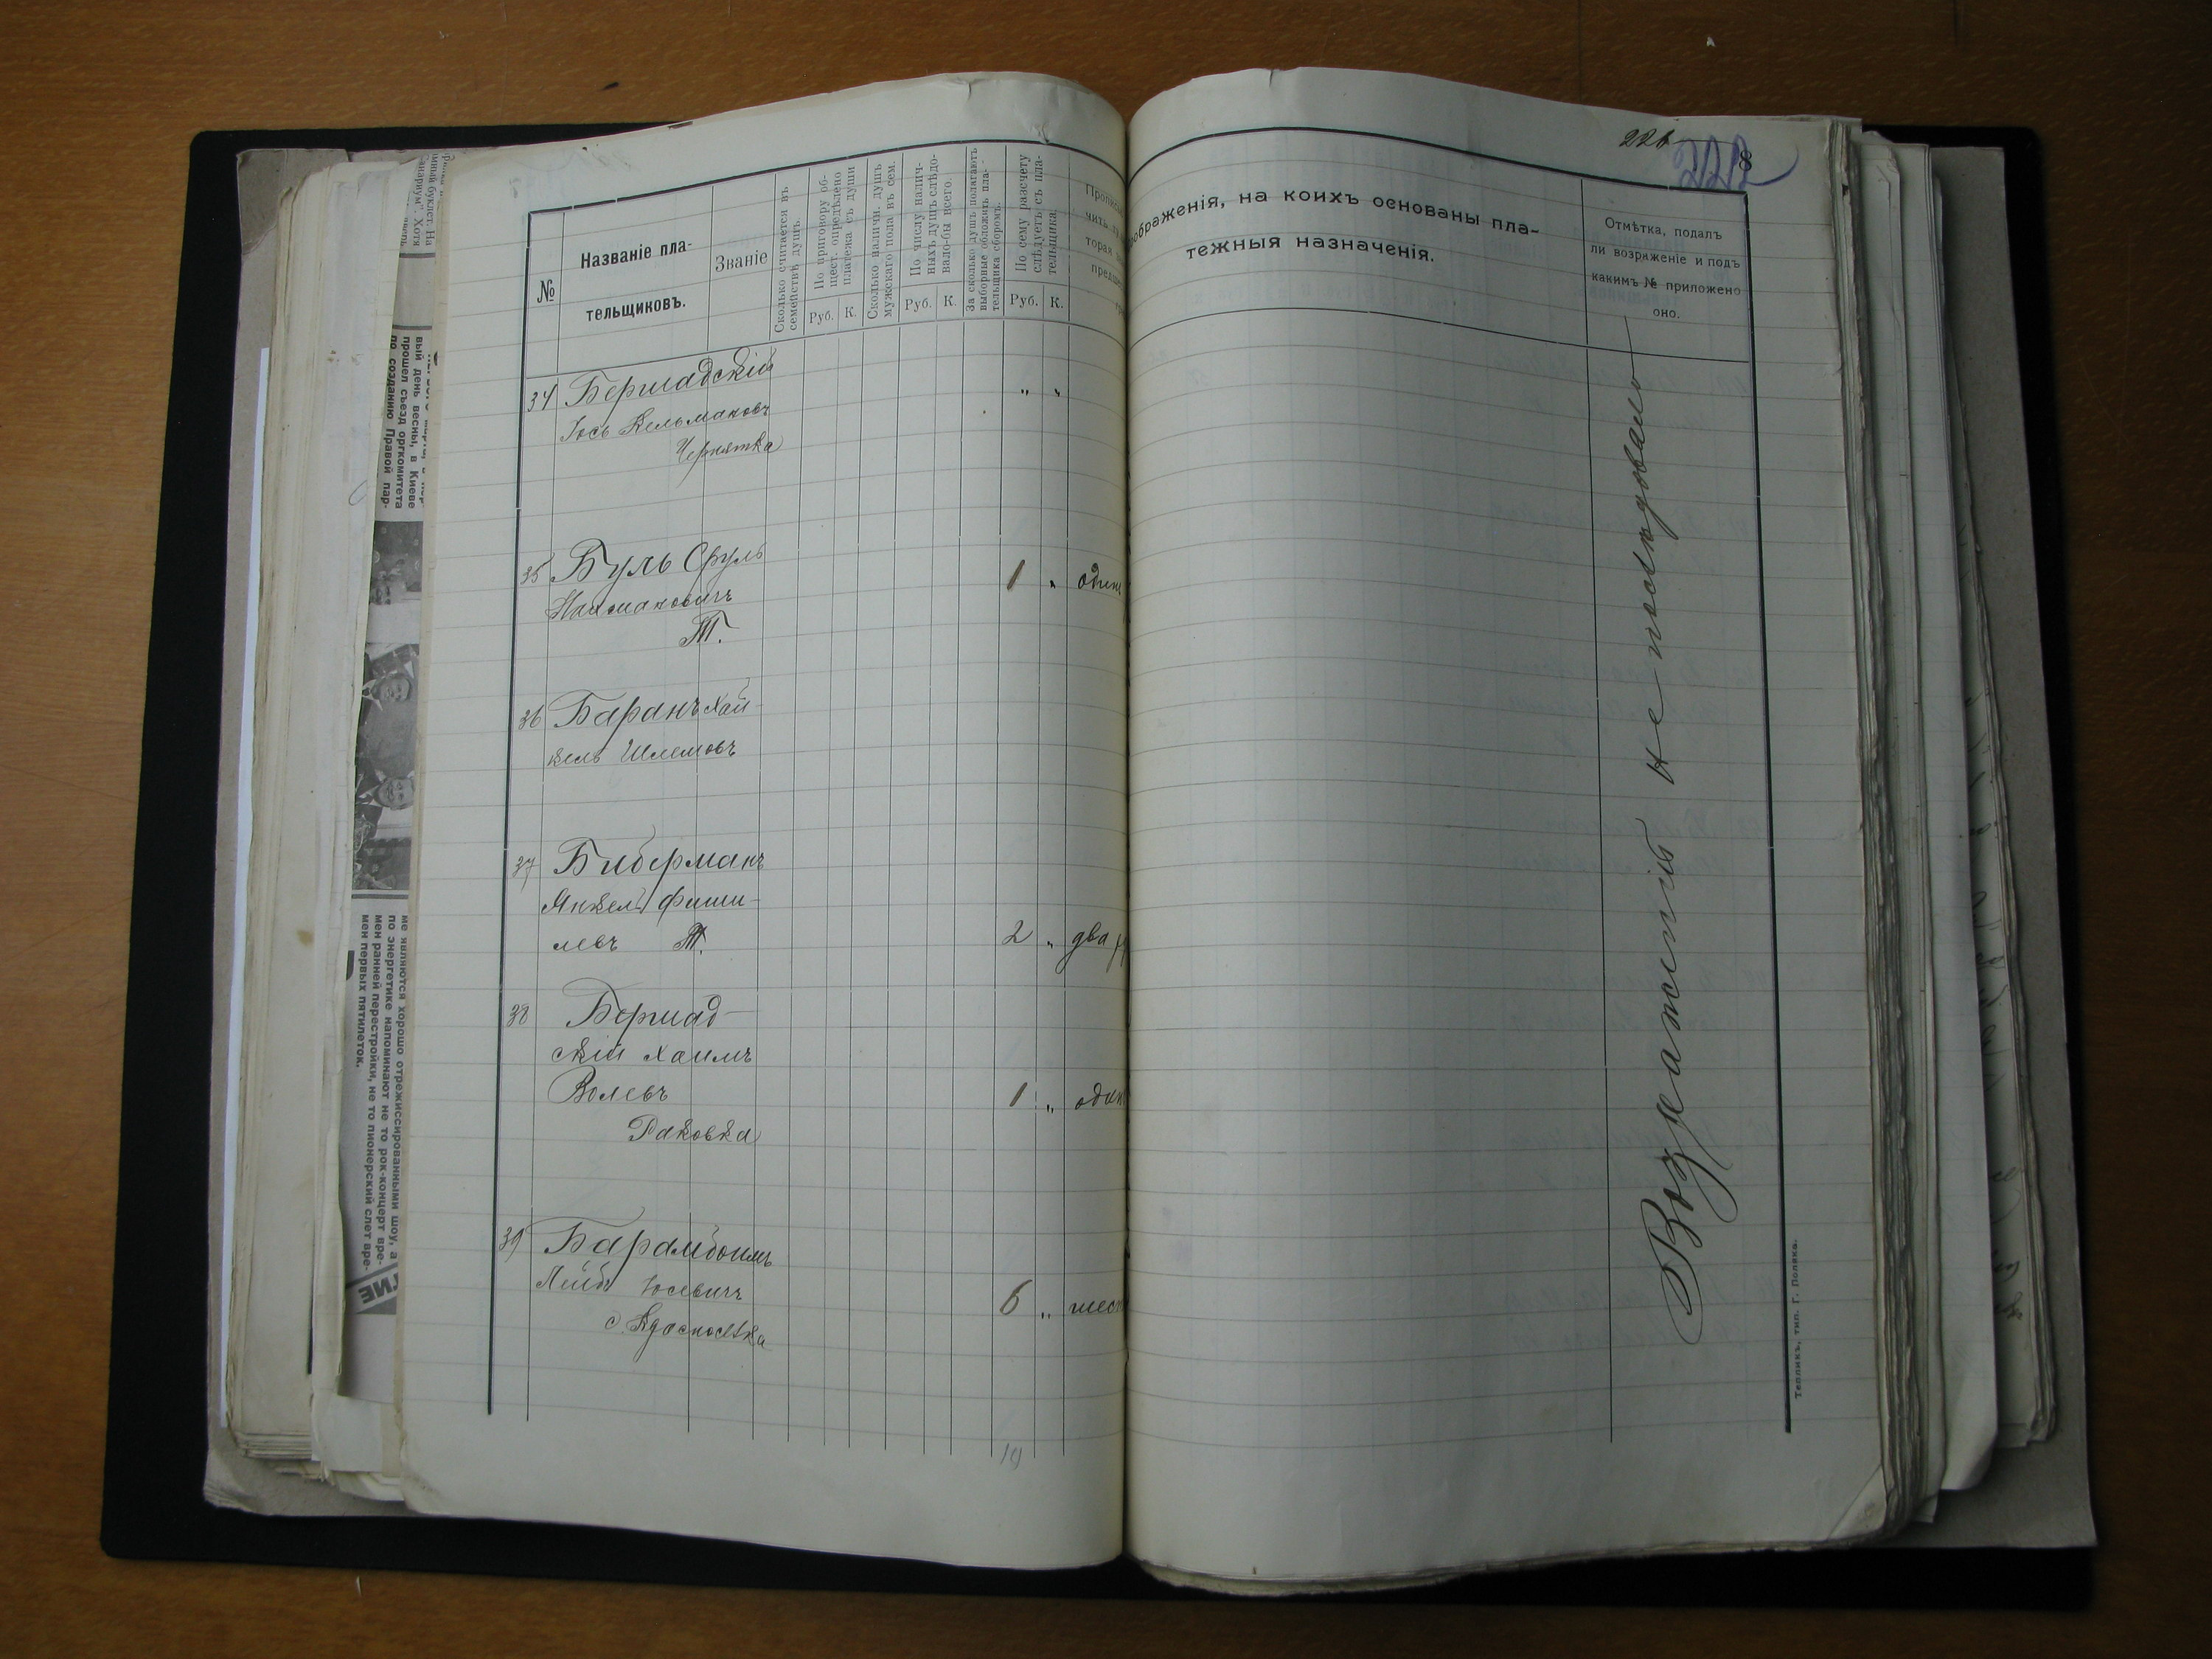 №
Названіе пла-
тельщиковъ.
Званіе
Сколько считается въ
семействѣ душъ.
По приговору об-
щест. опредѣлено
платежа съ души
Руб. К.
Сколько наличн. душъ
мужскаго пола въ сем.
По числу налич-
ныхъ душъ слѣдо-
вало-бы всего.
Руб. К.
За сколько душъ полагаютъ
выборные обложить пла-
тельщика сборомъ.
По сему разсчету
слѣдуетъ съ пла-
тельщика.
Руб. К.
34 Бершадскій
Іось Кельмановъ
Чернятка
" "
35 Буль Сруль
Наймановичъ
Т.
1 " одинъ
36 Баранъ Хай-
кель Шлемовъ
37 Биберманъ
Янкель Фиши-
левъ Т.
2 " два
38 Бершад-
скій Хаимъ
Волевъ
Раковка
1 " один
39 Барамбоимъ
Лейб Іосевичъ
с. Краснос
6 " шест
19
ображенія, на коихъ основаны пла-
тежныя назначенія.
226
222
8
Отмѣтка, подалъ
ли возраженіе и подъ
какимъ № приложено
оно.
Возраженій не послѣдовало
Тепликъ, тип. Г. Поляка.
вый день весны, в Киеве
прошел съезд оргкомитета
по созданию Правой пар-
ме являются хорошо отрежиссированными шоу, а
по энергетике напоминают не то рок-концерт вре-
мен ранней перестройки, не то пионерский слет вре-
мен первых пятилеток.